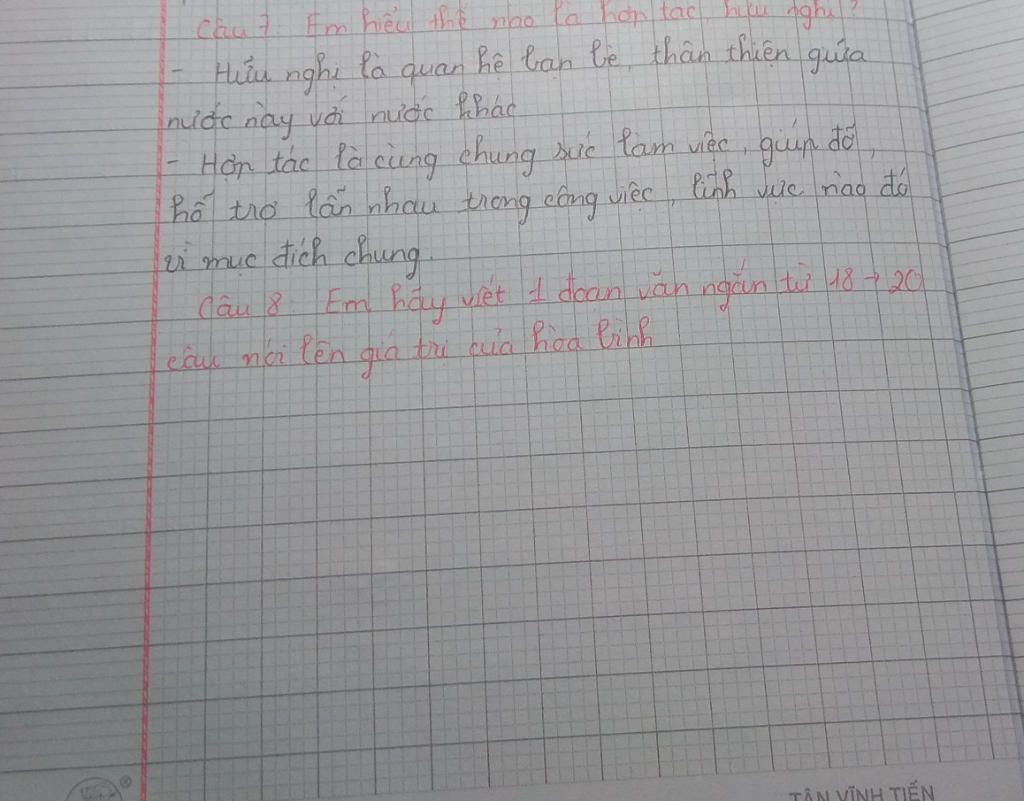 Câu 7. Em hiểu thế nào là hợp tác, hữu nghị?
- Hữu nghị là quan hệ bạn bè, thân thiện giữa
nước này với nước khác
- Hợp tác là cùng chung sức làm việc, giúp đỡ,
hỗ trợ lẫn nhau trong công việc, lĩnh vực nào đó
vì mục đích chung.
Câu 8. Em hãy viết 1 đoạn văn ngắn từ 18 → 20
câu nói lên giá trị của hòa bình
TÂN VĨNH TIẾN